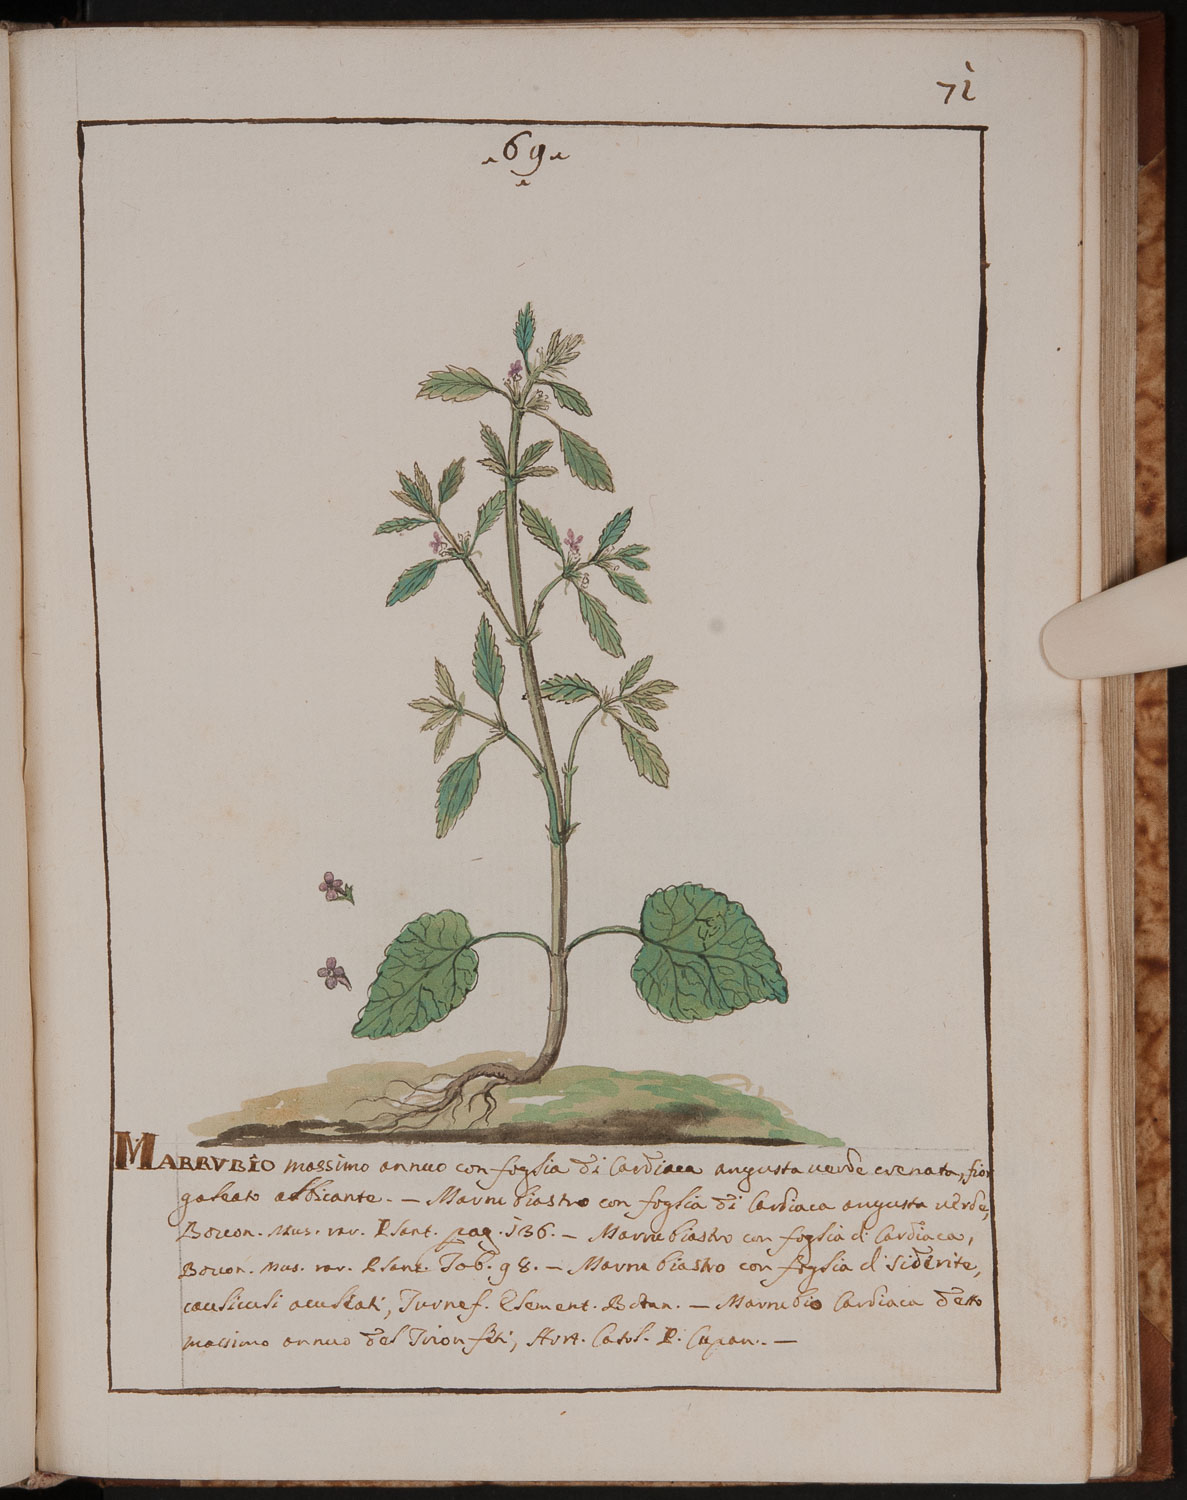 71
69
MARRUBIO massimo annuo con foglia di Cardiaca angusta verde crenata, fior
galeato albicante. — Marrubiastro con foglia di Cardiaca angusta verde,
Boccon. Mus. rar. Plant. pag. 136. — Marrubiastro con foglia di Cardiaca,
Boccon. Mus. rar. Plant. Tab. 98. — Marrubiastro con foglia di Siderite,
caulicoli aculeati, Turnef. Element. Botan. — Marrubio Cardiaca detto
massimo annuo del Trionfeti, Hort. Catol. P. Cupan. —